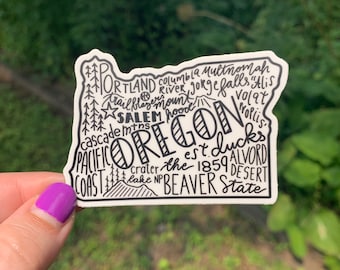 PORTLAND
Columbia River Gorge
Multnomah falls
trailblazers
mount hood
SALEM
cascade mtns
OREGON
PACIFIC COAST
crater lake NP
est 1859
the BEAVER State
ducks
ALVORD DESERT